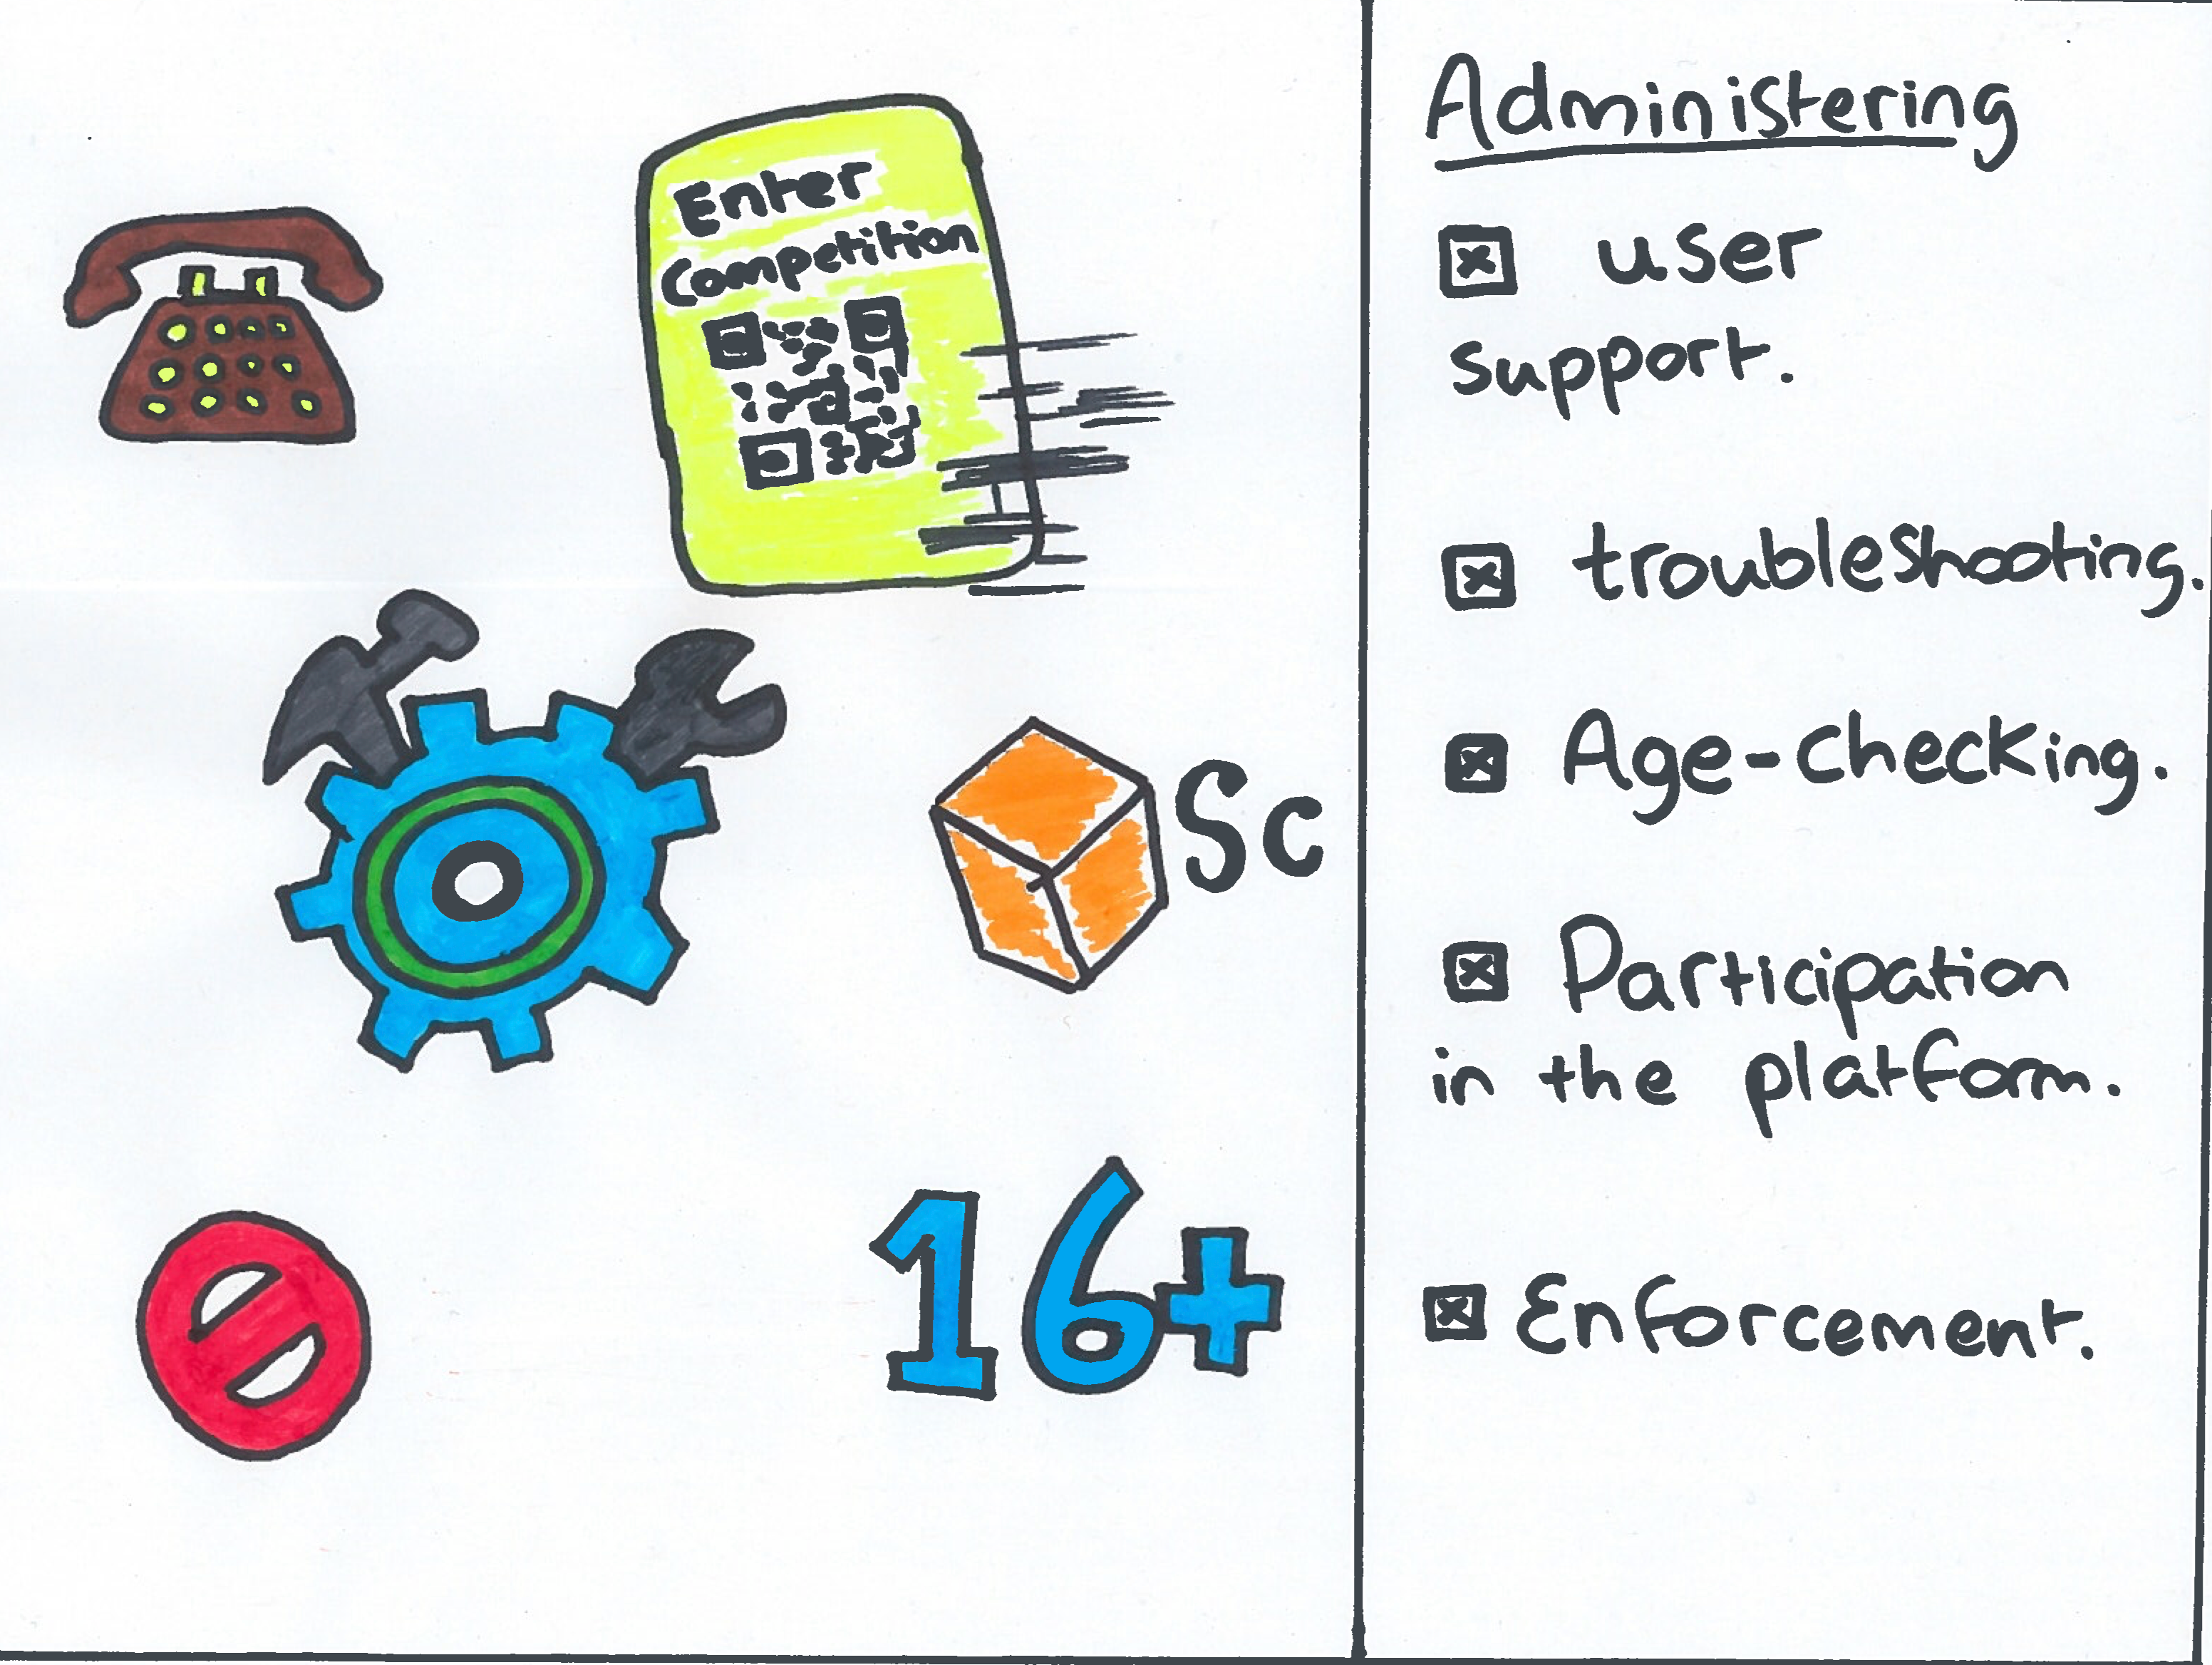 Enter
Competition
Sc
16+
Administering
user
support.
troubleshooting.
Age-checking.
Participation
in the platform.
Enforcement.